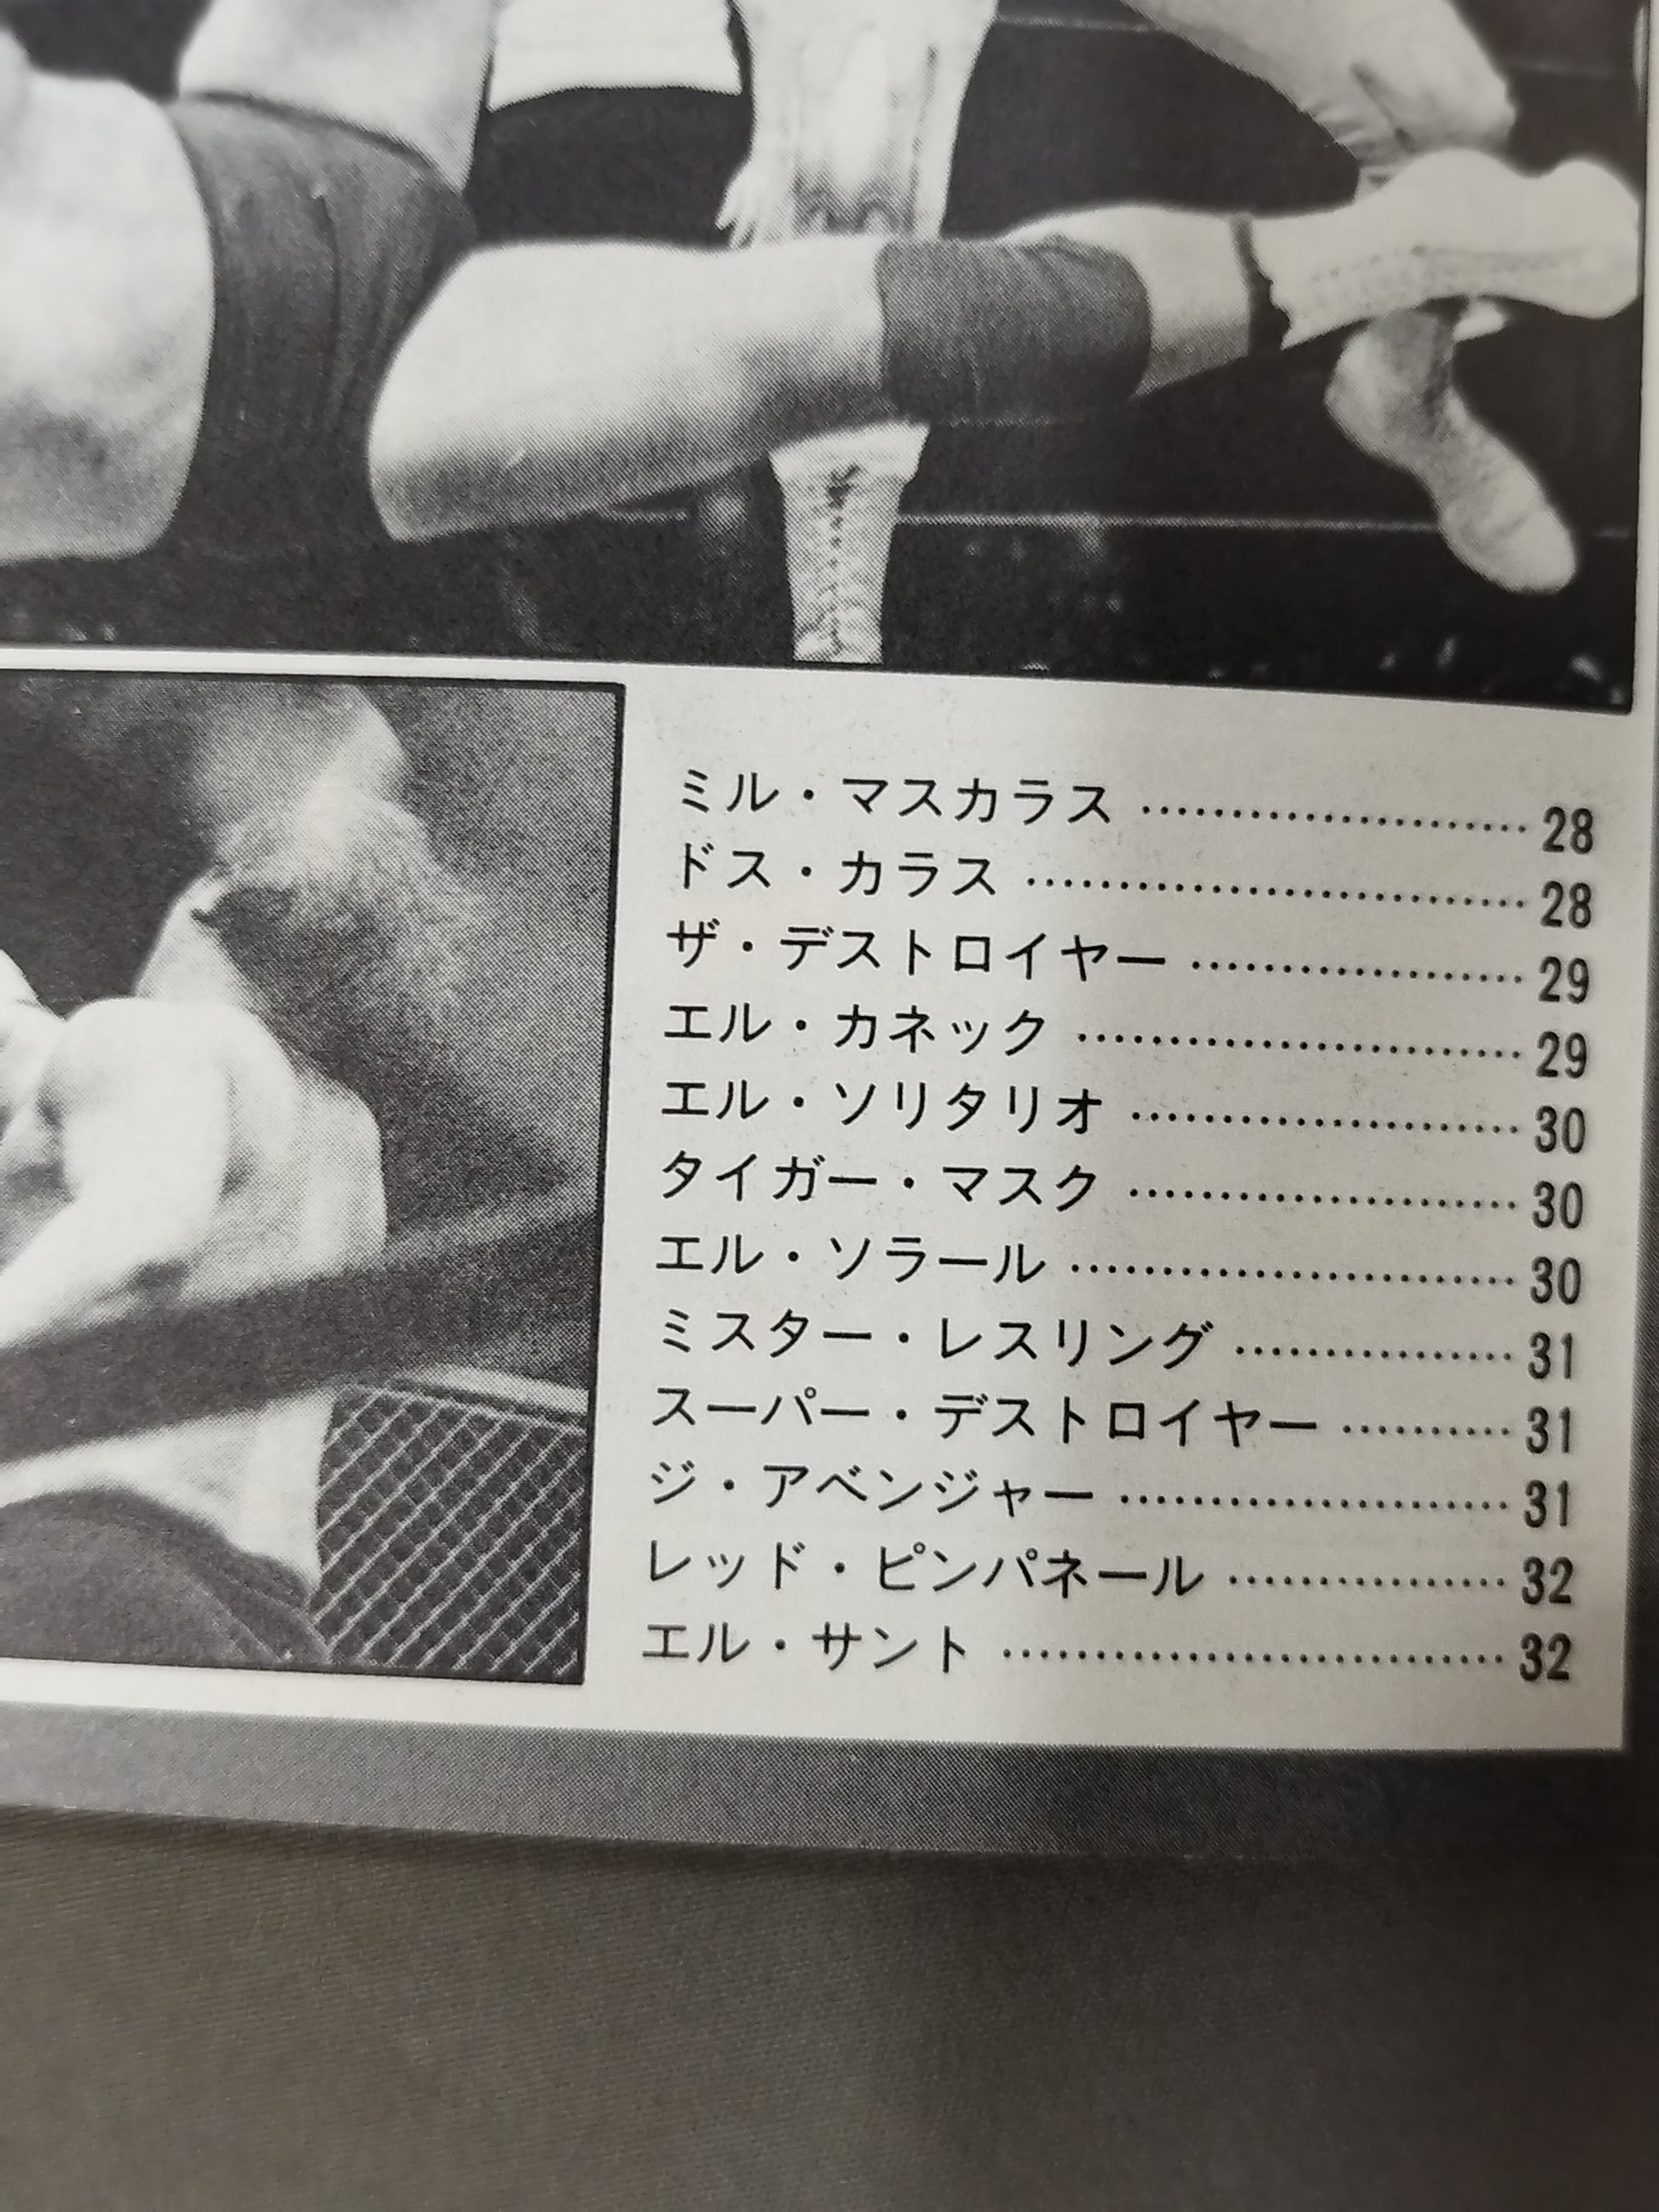 ミル・マスカラス……………………28
ドス・カラス……………………28
ザ・デストロイヤー……………………29
エル・カネック……………………29
エル・ソリタリオ……………………30
タイガー・マスク……………………30
エル・ソラール……………………30
ミスター・レスリング……………………31
スーパー・デストロイヤー……………………31
ジ・アベンジャー……………………31
レッド・ピンパネール……………………32
エル・サント……………………32